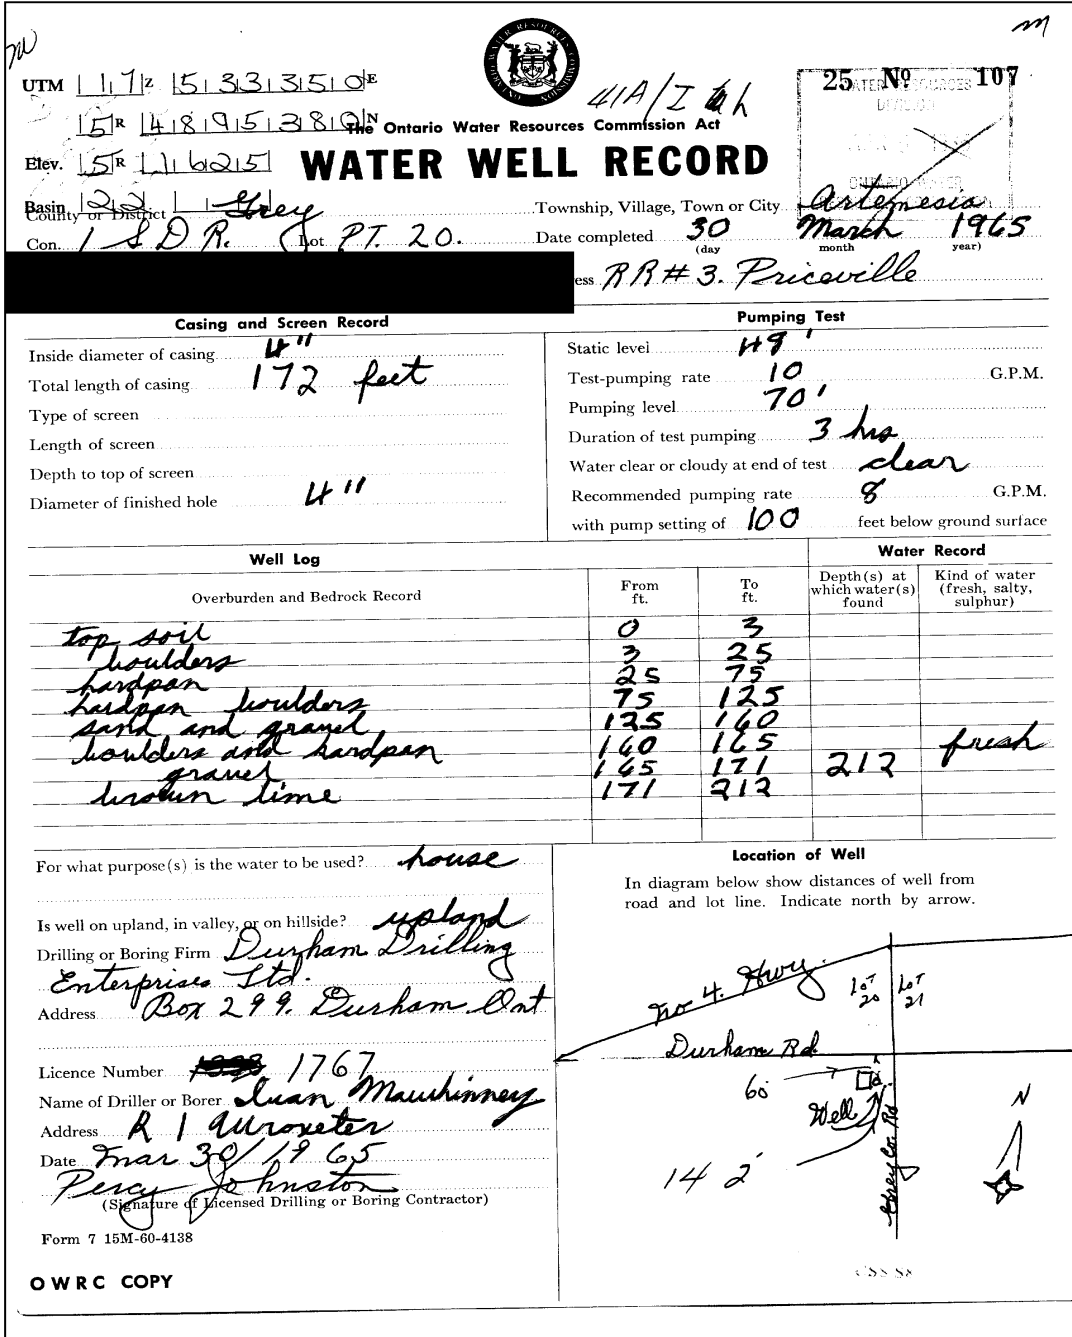 25 Nº 107
UTM 17 Z 533350 E
41A/I
5 R 4895380 N
The Ontario Water Resources Commission Act
Elev. 5 R 1625
WATER WELL RECORD
Basin 22
County or District Grey Township, Village, Town or City Artemesia
Con. 1 S D R. Lot PT. 20. Date completed 30 March 1965
(day month year)
ess RR#3. Priceville
Casing and Screen Record
Inside diameter of casing 4"
Total length of casing 172 feet
Type of screen
Length of screen
Depth to top of screen
Diameter of finished hole 4"
Pumping Test
Static level 48'
Test-pumping rate 10 G.P.M.
Pumping level 70'
Duration of test pumping 3 hrs
Water clear or cloudy at end of test clear
Recommended pumping rate 8 G.P.M.
with pump setting of 100 feet below ground surface
Well Log Water Record
Overburden and Bedrock Record From ft. To ft. Depth(s) at which water(s) found Kind of water (fresh, salty, sulphur)
top soil 0 3
boulders 3 25
hardpan 25 75
hardpan boulders 75 125
sand and gravel 125 160
boulders and hardpan 160 165 fresh
gravel 165 171 212
brown lime 171 212
For what purpose(s) is the water to be used? house
Is well on upland, in valley, or on hillside? upland
Drilling or Boring Firm Durham Drilling
Enterprises Ltd.
Address Box 299. Durham Ont
Licence Number 1767
Name of Driller or Borer Ivan Mawhinney
Address R 1 Wroxeter
Date Mar 30/1965
Percy Johnston
(Signature of Licensed Drilling or Boring Contractor)
Form 7 15M-60-4138
OWRC COPY
Location of Well
In diagram below show distances of well from
road and lot line. Indicate north by arrow.
No 4. Hwy.
LOT 20
LOT 21
Durham Rd.
60'
Well
N
Grey Co. Rd
14 2'
CSS.S8